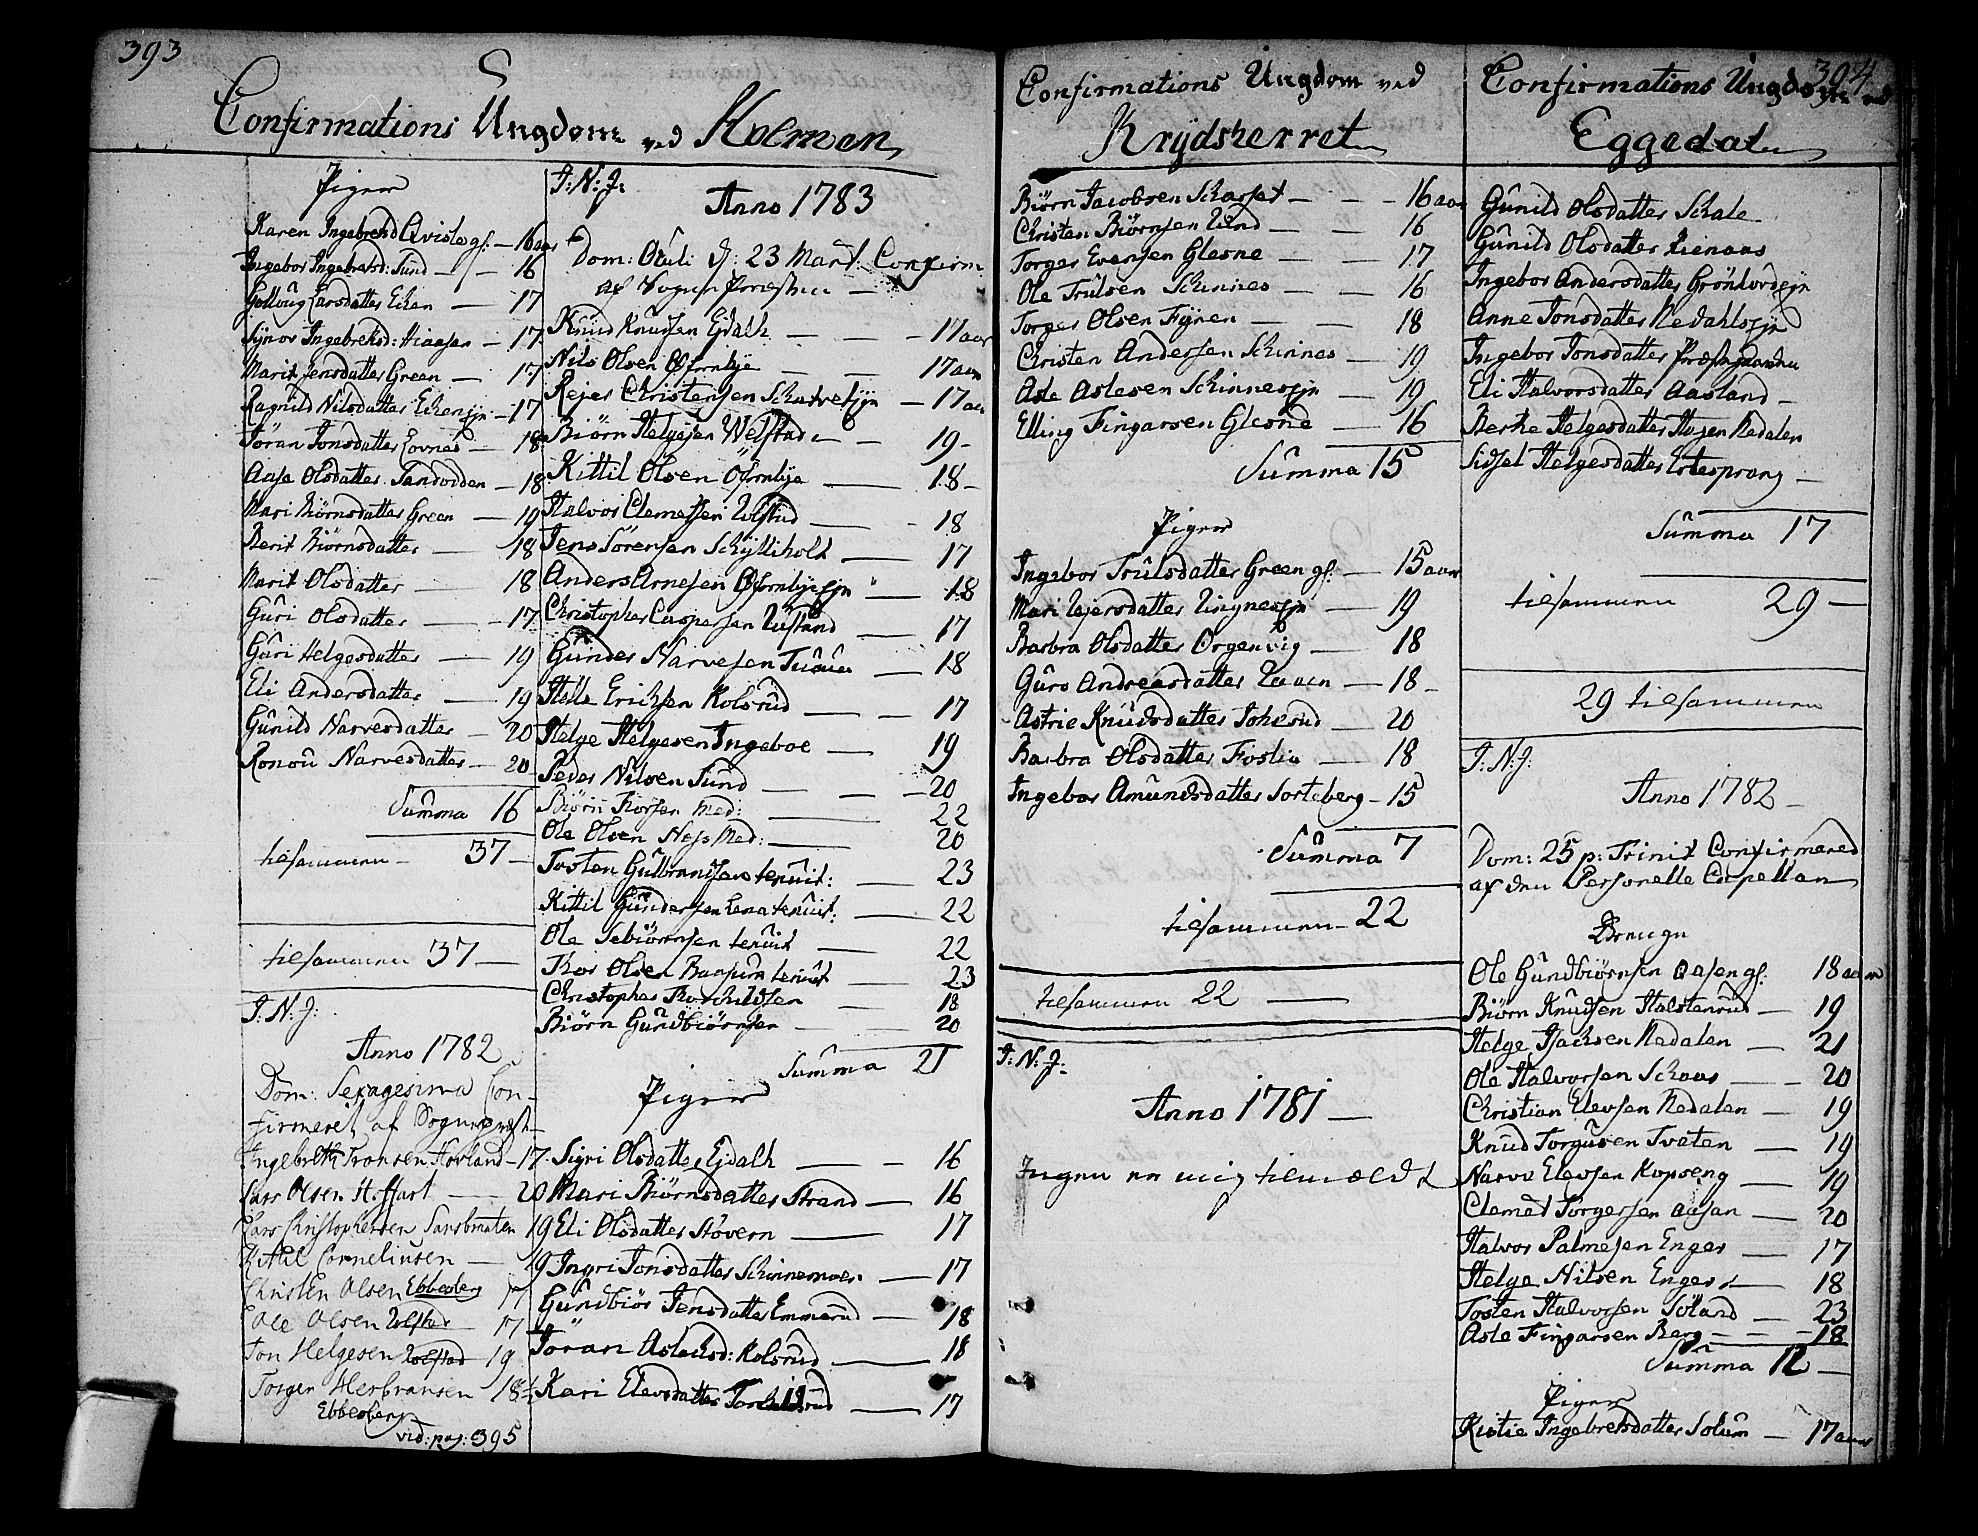 393
Confirmations Ungdom ved Holmen
Piger
Karen Ingebretsd Qvisle gf. – 16 aar
Ingebor Ingebretsd: Sund – 16
Golloug Larsdatter Eken – 17
Synor Ingebretsd: Hiaasen – 17
Marit Jensdatter Green – 17
Ragnild Nilsdatter Ekenejn – 17
Jöran Jonsdatter Lovnes – 18
Aase Olsdatter Sandodden – 18
Mari Biörnsdatter Green – 19
Berit Biörnsdatter – 18
Marit Olsdatter – 18
Guri Olsdatter – 17
Guri Helgesdatter – 19
Eli Andersdatter – 19
Gunild Narvesdatter – 20
Ronou Narvesdatter – 20
Summa 16
tilsammen – 37 –
tilsammen 37 –
I: N: J:
Anno 1782
Dom: Sexagesima Con-
firmeret af Sognepræst
Ingebreth Tronsen Hovland – 17
Lars Olsen Hoffart – 20
Lars Christophersen Sandbraaten 19
Kittil Corneliusen – 19
Christen Olsen Ebbesberg 17
Ole Olsen Ulfstad 17
Jon Helgesen Wolfstad 19
Torger Herbransen 18½
Ebbesberg
vid: pag: 395
I: N: J:
Anno 1783
Dom: Oculi d: 23 Mart: Confirm
af Sogne Præsten –
Knud Knudsen Ejdalh – 17 aar
Nils Olsen Ofrnbye – 17 aar
Rejer Christensen Schartvetejn – 17 aar
Biörn Helgesen Wefstad – 19 –
Kittil Olsen Öfrnbye – 18 –
Halvor Clemetsen Ulfstad – 18
Jens Sörensen Schyttiholt – 17
Anders Arnesen Öfrnbyeejn – 18
Christopher Caspersen Ulfstand – 17
Gunder Narvesen Tuven – 18
Helle Erichsen Kolsrud – 17
Helge Helgesen Ingeboe – 19
Peder Nilsen Sund – 20
Biörn Thorsen Med: – 22
Ole Olsen Ness Med: – 20
Tosten Gulbrandsen tenuit: – 23
Kittil Gundersen Lena tenuit: – 22
Ole Sebiörnsen tenuit – 22
Thor Olsen Baasum tenuit – 23
Christopher Thorchildsen – 18
Biörn Gundbiörnsen – 20
Summa 21
Piger
Sigri Olsdatter Ejdalh – 16
Mari Biörnsdatter Strand – 16
Eli Olsdatter Stövern – 17
Ingri Jonsdatter Schinnemoen – 17
Gundbiör Jensdatter Emmerud – 18
Jöran Aslachsd: Kolsrud – 18
Kari Elevsdatter Torchildsrud – 17
Confirmations Ungdom ved
Krydsherret
Biörn Jacobsen Scharset – 16 aar
Christen Biörnsen Lund – 16
Torger Evensen Glesne – 17
Ole Trulsen Schinnes – 16
Torger Olsen Fynen – 18
Christen Andersen Schinnes – 19
Asle Aslesen Schinnesejn – 19
Elling Fingarsen Glesne – 16
Summa 15
Piger
Ingebor Trulsdatter Green gf. – 15 aar
Mari Rejersdatter Ringnesejn – 19
Barbra Olsdatter Örgenvig – 18
Guro Andreasdatter Raaen – 18 –
Astrie Knudsdatter Johnsrud – 20
Barbra Olsdatter Foslie – 18
Ingebor Amundsdatter Sorteberg – 15
Summa 7
tilsammen – 22
tilsammen 22 –
I: N: J:
Anno 1781 –
Ingen er mig tilmældt
304
Confirmations Ungdom ved
Eggedal
Gunild Olsdatter Schale
Gunild Olsdatter Kienaas
Ingebor Andersdatter Grönhovdejn
Anne Jonsdatter Nedahlsejn
Ingebor Jonsdatter Præstegaarden
Eli Halvorsdatter Aasland –
Berte Helgesdatter Husen Nedalen
Sidsel Helgesdatter Ertesprang –
Summa 17
tilsammen 29 –
29 tilsammen
I: N: J:
Anno 1782 –
Dom: 25 p: Trinit Confirmered
af den Personelle Capellan
Drenge
Ole Gundbiörnsen Aasen gf. 18 aar
Biörn Knudsen Halstenrud – 19
Helge Isachsen Nedalen – 21
Ole Halvorsen Schaar – 20
Christian Elevsen Nedalen – 19
Knud Torgusen Tvaten – 19
Narve Elevsen Kopseng – 19
Clemet Torgersen Aasan – 20
Halvor Palmesen Enger – 17
Helge Nilsen Enger – 18
Tosten Halvorsen Söland – 23
Asle Fingarsen Berg – 18
Summa 12 –
Piger
Kistie Ingebretsdatter Solum – 17 aar